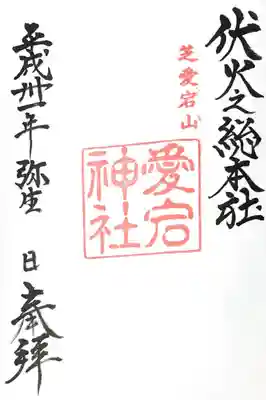 伏火之総本社
芝愛宕山
愛宕
神社
平成卅一年弥生 日
奉拝